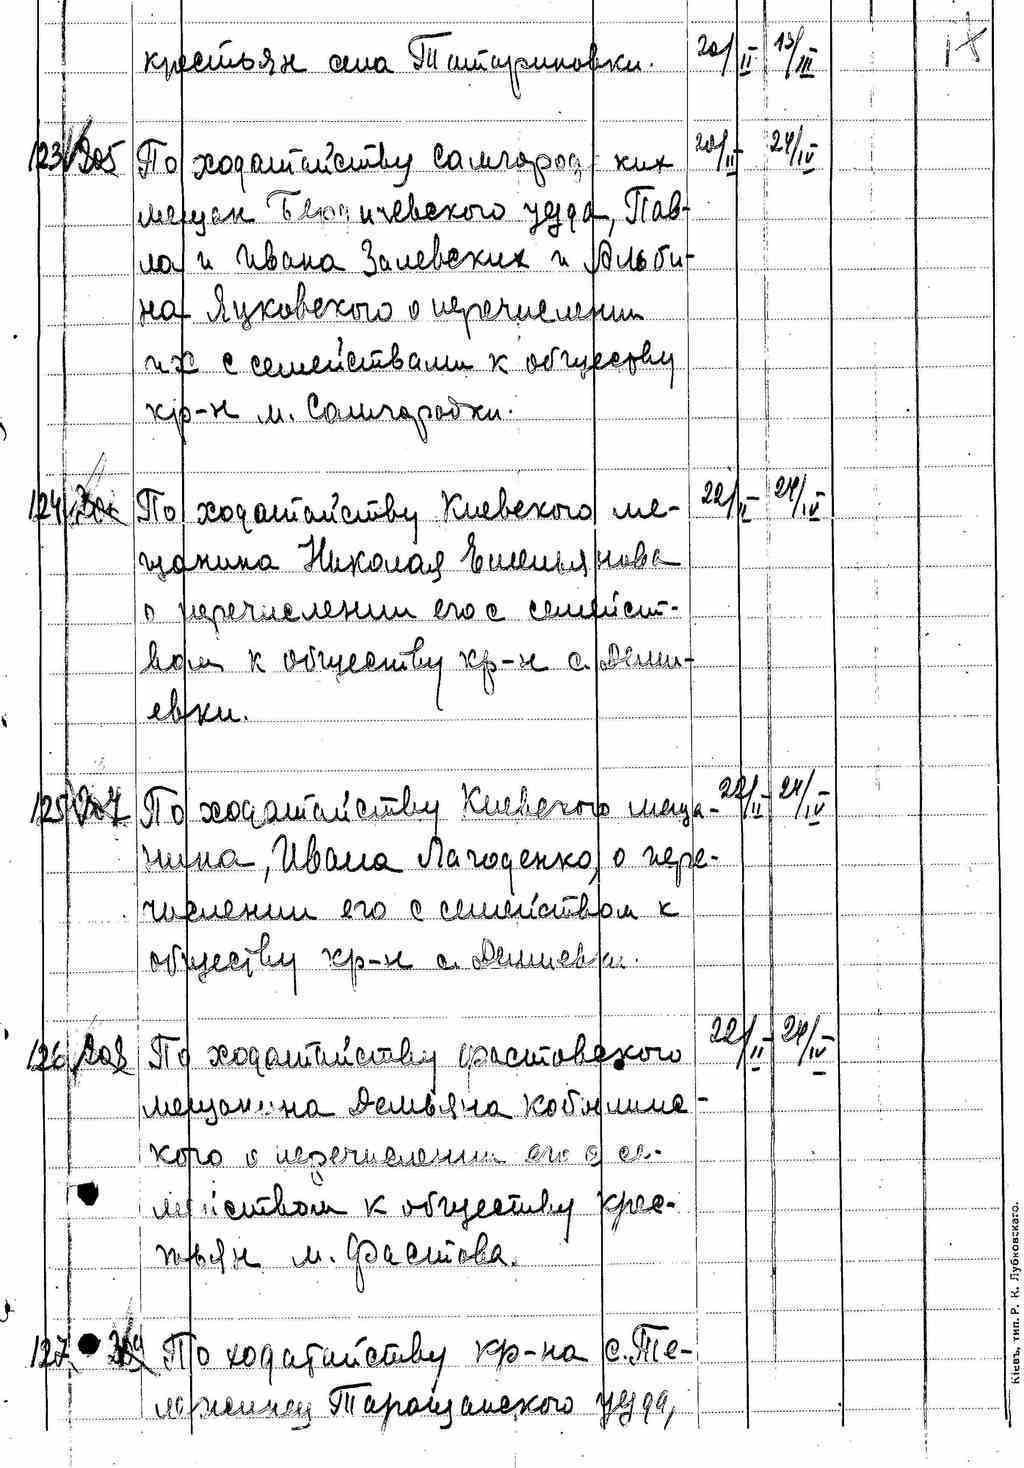 крестьян села Татариновки. 20/II 13/III
123 305 По ходатайству самгородских 20/II 24/IV
мещан Бердичевского уезда, Пав-
ла и Ивана Залевских и Альби-
на Яцковского о перечислении
их с семействами к обществу
кр-н м. Самгородки.
124 По ходатайству Киевского ме- 22/II 24/IV
щанина Николая Емельянова
о перечислении его с семейст-
вом к обществу кр-н с. Деми-
евки.
125 307 По ходатайству Киевского меща- 22/II 24/IV
нина, Ивана Лагоденко, о пере-
числении его с семейством к
обществу кр-н с. Демиевки.
126 308 По ходатайству фастовского 22/II 24/IV
мещанина Демьяна Кобылинс-
кого о перечислении его с се-
мейством к обществу крес-
тьян м. Фастова.
127 309 По ходатайству кр-на с. Те-
лежинец Таращанского уезда,
Кіевъ, тип. Р. К. Лубковскаго.